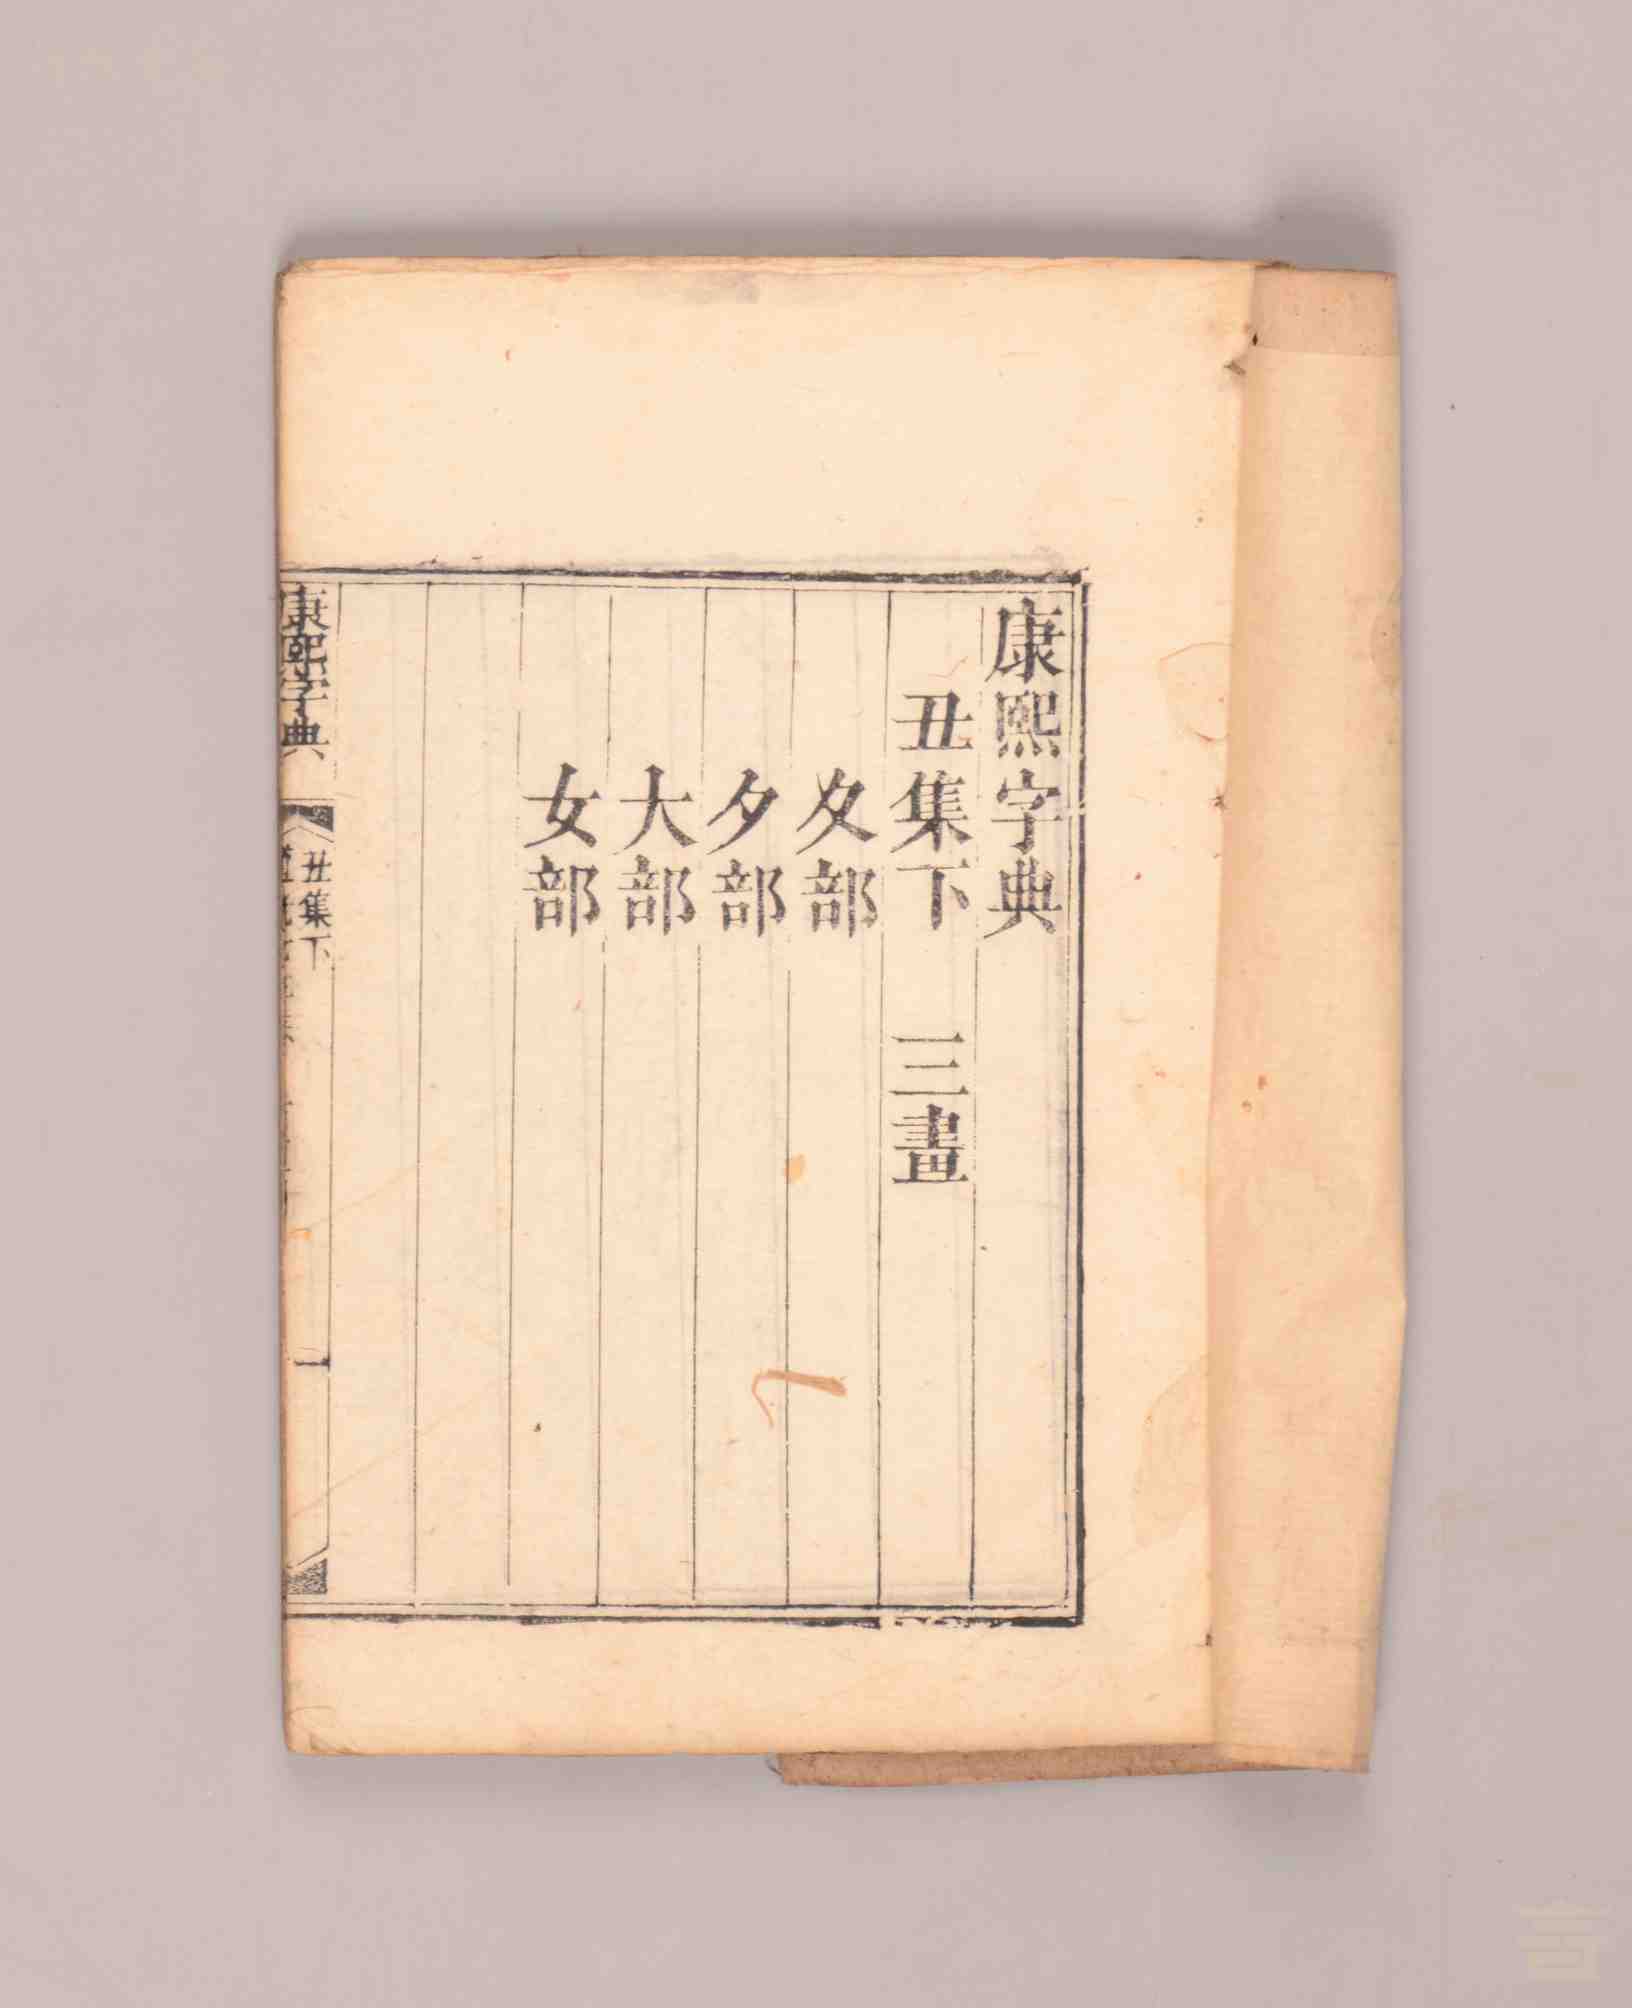 康熙字典
丑集下 三畫
夊部
夕部
大部
女部
康熙字典
丑集下
一